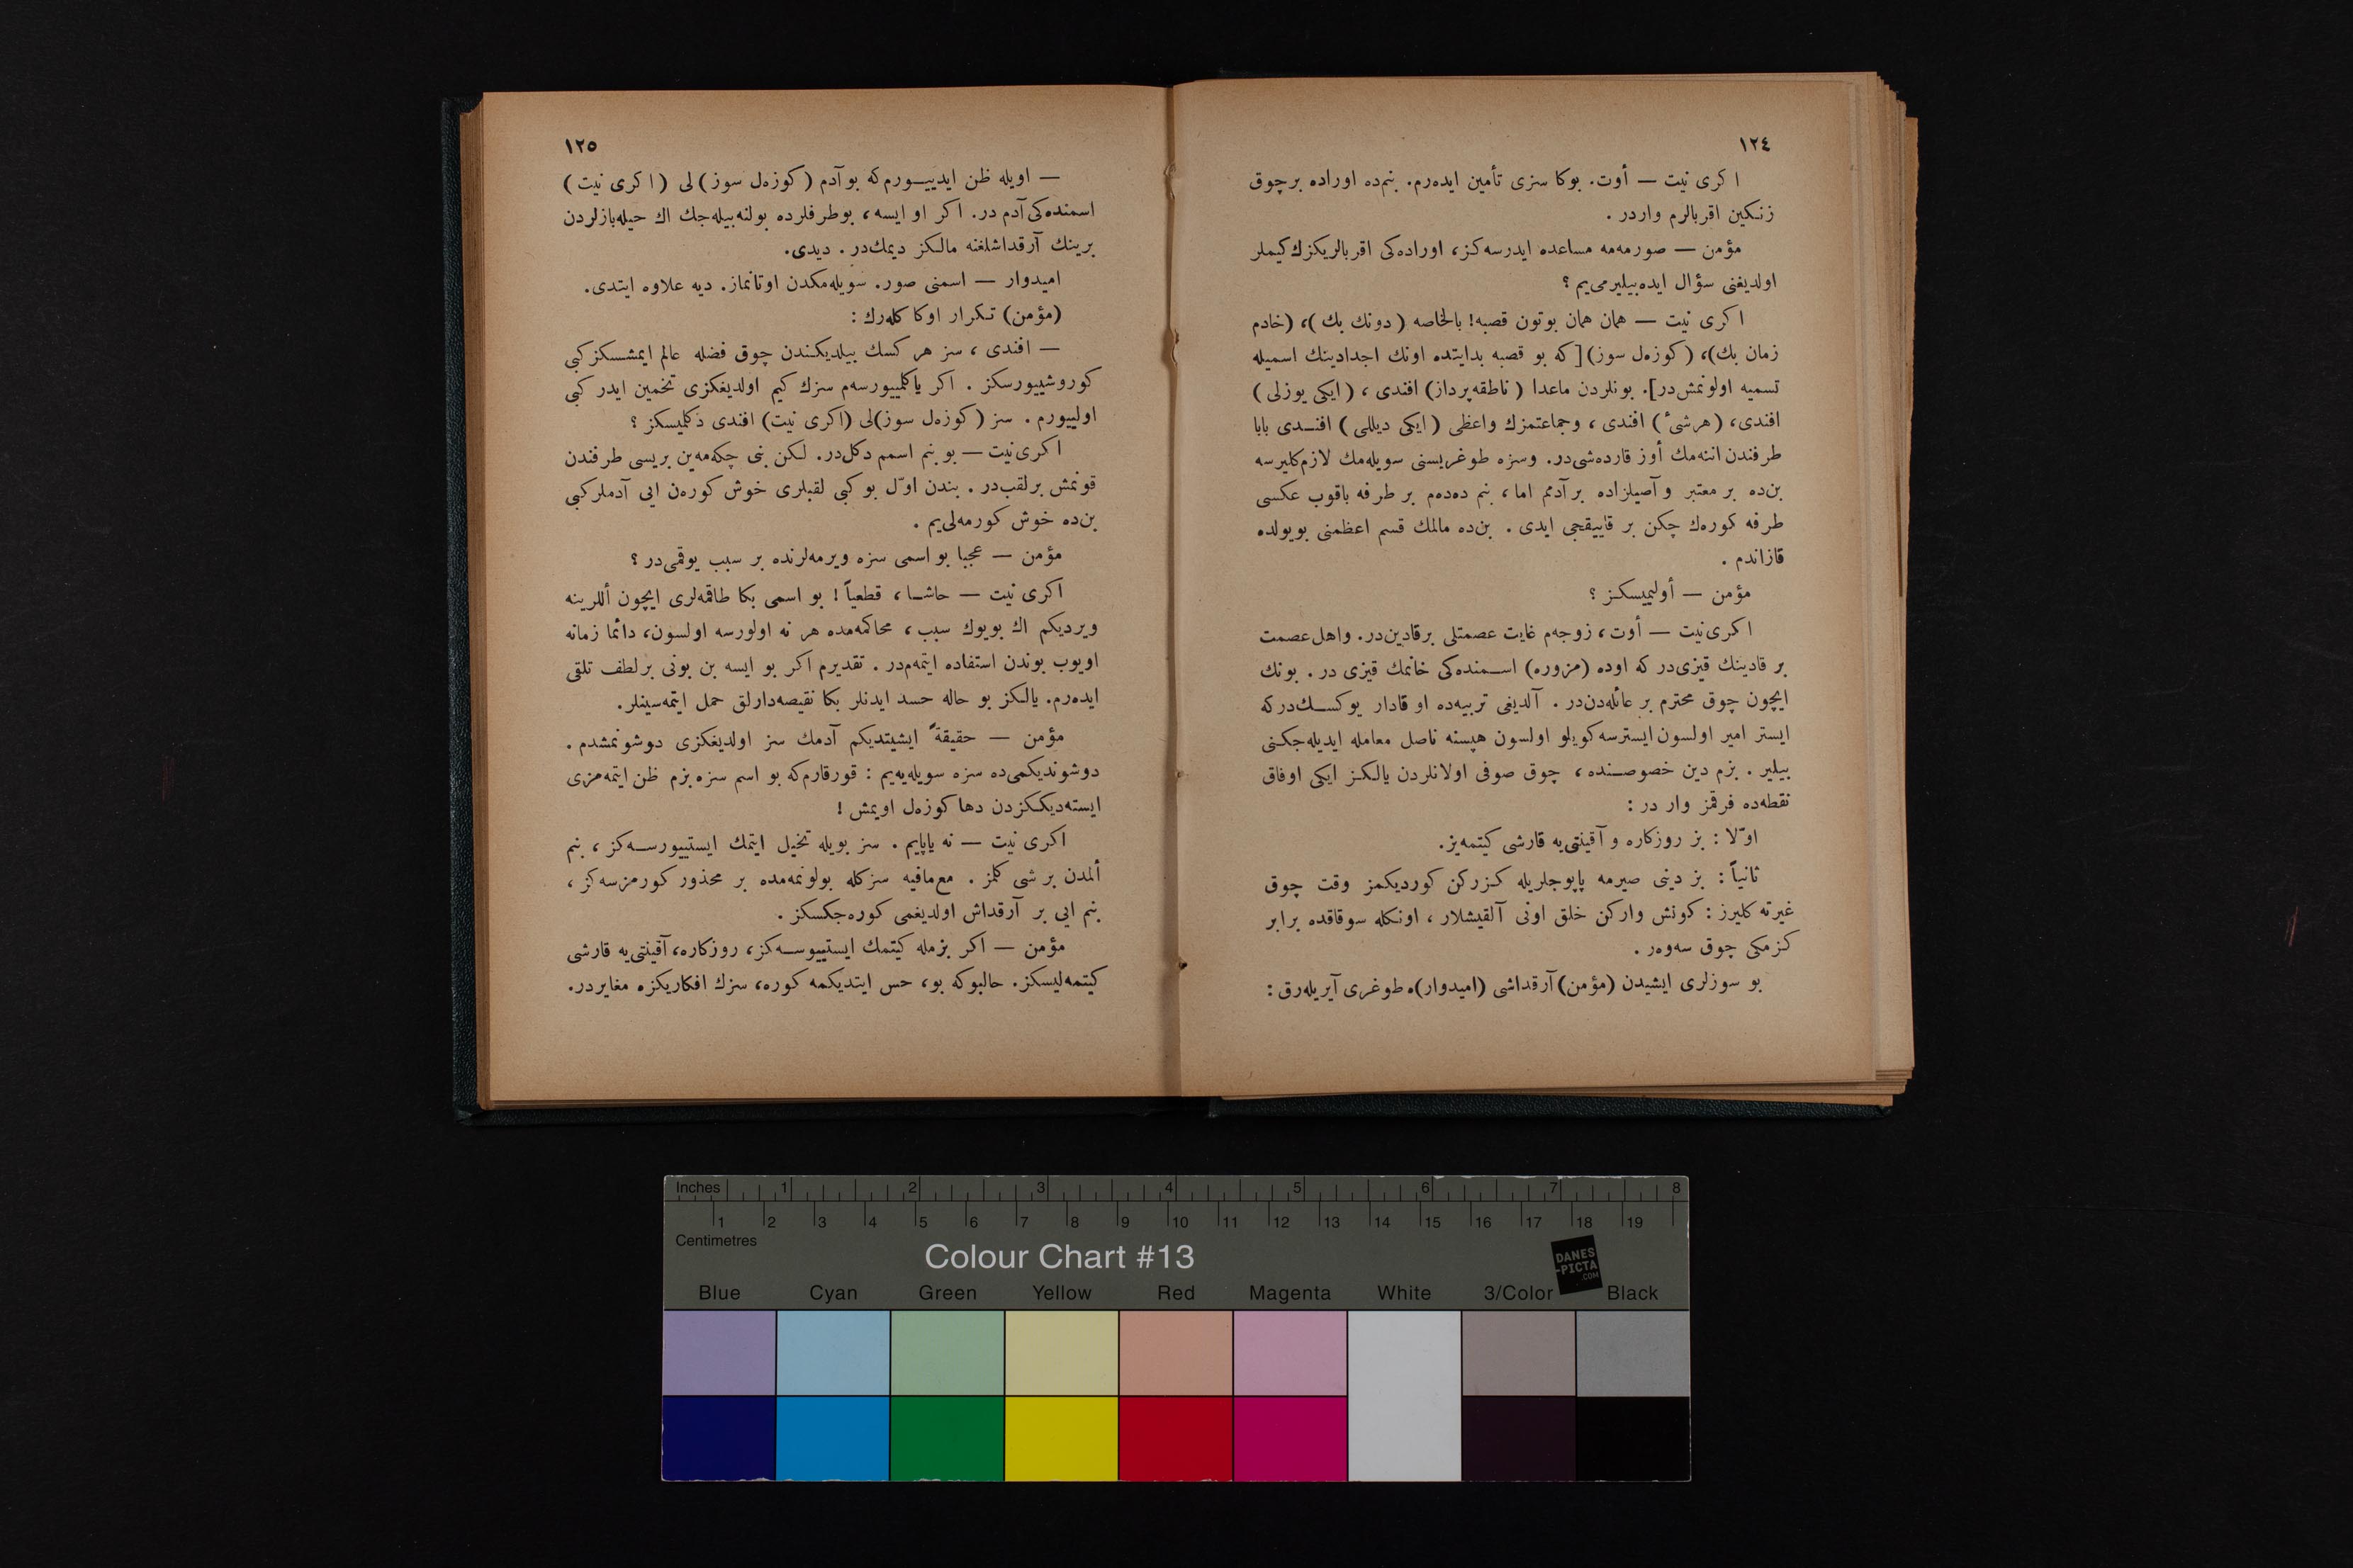 ١٢٤
اكری نیت — أوت. بوكا سزی تأمین ایده‌رم. بنم‌ده اوراده برچوق
زنكین اقربالرم واردر .
مؤمن — صورمه‌مه مساعده ایدرسه‌كز، اوراده‌كی اقربالریكزك كیملر
اولدیغنی سؤال ایده‌بیلیرمی‌یم ؟
اكری نیت — همان همان بوتون قصبه! بالخاصه (دونك بك)، (خادم
زمان بك)، (كوزه‌ل سوز) [كه بو قصبه بدایتده اونك اجدادینك اسمیله
تسمیه اولونمش‌در]. بونلردن ماعدا (ناطقه‌پرداز) افندی ، (ایكی یوزلی)
افندی، (هرشیء) افندی ، وجماعتمزك واعظی (ایكی دیللی) افندی بابا
طرفندن اننه‌مك أوز قارده‌شی‌در. وسزه طوغریسنی سویله‌مك لازم‌كلیرسه
بن‌ده بر معتبر و آصیلزاده بر آدمم اما، بنم ده‌ده‌م بر طرفه باقوب عكسی
طرفه كوره‌ك چكن بر قاییقجی ایدی . بن‌ده مالمك قسم اعظمنی بویولده
قازاندم .
مؤمن — أولیمیسكز ؟
اكری‌نیت — أوت، زوجه‌م غایت عصمتلی برقادین‌در. واهل‌عصمت
بر قادینك قیزی‌در كه اوده (مزوره) اسمنده‌كی خانمك قیزی در . بونك
ایچون چوق محترم بر عائله‌دن‌در . آلدیغی تربیه‌ده او قادار یوكسك‌در‌كه
ایستر امیر اولسون ایسترسه كویلو اولسون هپسنه ناصل معامله ایدیله‌جكنی
بیلیر . بزم دین خصوصنده، چوق صوفی اولانلردن یالكز ایكی اوفاق
نقطه‌ده فرقمز وار در :
اوّلا : بز روزكاره و آقینتی‌یه قارشی كیتمه‌یز.
ثانیاً : بز دینی صیرمه پاپوجلریله كزركن كوردیكمز وقت چوق
غیرته كلیرز : كونش واركن خلق اونی آلقیشلار ، اونكله سوقاقده برابر
كزمكی چوق سه‌وه‌ر .
بو سوزلری ایشیدن (مؤمن) آرقداشی (امیدوار)ه طوغری آیریله‌رق :
١٢٥
— اویله ظن ایدییورم‌كه بو آدم (كوزه‌ل سوز) لی (اكری نیت)
اسمنده‌كی آدم در. اكر او ایسه، بوطرفلرده بولنه‌بیله‌جك اك حیله‌بازلردن
برینك آرقداشلغنه مالكز دیمك‌در . دیدی.
امیدوار — اسمنی صور. سویله‌مكدن اوتانماز. دیه علاوه ایتدی.
(مؤمن) تكرار اوكا كله‌رك :
— افندی ، سز هر كسك بیلدیكندن چوق فضله عالم ایمشسكز كبی
كوروشییورسكز . اكر یاكلمییورسه‌م سزك كیم اولدیغكزی تخمین ایدر كبی
اولییورم . سز (كوزه‌ل سوز)لی (اكری نیت) افندی دكلمیسكز ؟
اكری‌نیت — بو بنم اسمم دكل‌در. لكن بنی چكه‌مه‌ین بریسی طرفندن
قونمش برلقب‌در . بندن اوّل بو كبی لقبلری خوش كوره‌ن ایی آدملركبی
بن‌ده خوش كورمه‌لی‌یم .
مؤمن — عجبا بو اسمی سزه ویرمه‌لرنده بر سبب یوقمی‌در ؟
اكری نیت — حاشا، قطعیاً ! بو اسمی بكا طاقمه‌لری ایچون أللرینه
ویردیكم اك بویوك سبب ، محاكمه‌مده هر نه اولورسه اولسون، دائما زمانه
اویوب بوندن استفاده ایتمه‌م‌در . تقدیرم اكر بو ایسه بن بونی برلطف تلقی
ایده‌رم. یالكز بو حاله حسد ایدنلر بكا نقیصه‌دارلق حمل ایتمه‌سینلر.
مؤمن — حقیقةً ایشیتدیكم آدمك سز اولدیغكزی دوشونمشدم .
دوشوندیكمی‌ده سزه سویله‌یه‌یم : قورقارم‌كه بو اسم سزه بزم ظن ایتمه‌مزی
ایسته‌دیككزدن دها كوزه‌ل اویمش !
اكری نیت — نه یاپایم . سز بویله تخیل ایتمك ایستییورسه‌كز ، بنم
ألمدن بر شی كلمز . مع‌مافیه سزكله بولونمه‌مده بر محذور كورمزسه‌كز ،
بنم ایی بر آرقداش اولدیغمی كوره‌جكسكز .
مؤمن — اكر بزمله كیتمك ایستییوسه‌كز، روزكاره، آقینتی‌یه قارشی
كیتمه‌لیسكز. حالبوكه بو، حس ایتدیكمه كوره، سزك افكاریكزه مغایردر.
Inches 1 2 3 4 5 6 7 8
1 2 3 4 5 6 7 8 9 10 11 12 13 14 15 16 17 18 19
Centimetres
Colour Chart #13
DANES
-PICTA
.COM
Blue Cyan Green Yellow Red Magenta White 3/Color Black